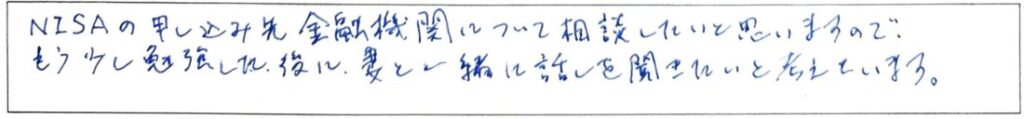 NISAの申し込み先金融機関について相談したいと思いますので、
もう少し勉強した後に、妻と一緒に話しを聞きたいと考えています。